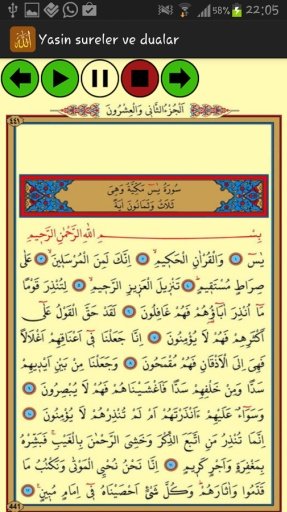 58% 22:05
Yasin sureler ve dualar
اَلْجُزْءُ الثَّانِي وَالْعِشْرُونَ
٤٤١
سُورَةُ يٰسٓ مَكِّيَّةٌ وَهِيَ
ثَلَاثٌ وَثَمَانُونَ اٰيَةً
بِسْمِ اللّٰهِ الرَّحْمٰنِ الرَّحِيمِ
يٰسٓ ١ وَالْقُرْاٰنِ الْحَكِيمِ ٢ اِنَّكَ لَمِنَ الْمُرْسَلِينَ ٣ عَلٰى
صِرَاطٍ مُسْتَقِيمٍ ٤ تَنْزِيلَ الْعَزِيزِ الرَّحِيمِ ٥ لِتُنْذِرَ قَوْمًا
مَٓا اُنْذِرَ اٰبَٓاؤُ۬هُمْ فَهُمْ غَافِلُونَ ٦ لَقَدْ حَقَّ الْقَوْلُ عَلٰٓى
اَكْثَرِهِمْ فَهُمْ لَا يُؤْمِنُونَ ٧ اِنَّا جَعَلْنَا فِٓي اَعْنَاقِهِمْ اَغْلَالًا
فَهِيَ اِلَى الْاَذْقَانِ فَهُمْ مُقْمَحُونَ ٨ وَجَعَلْنَا مِنْ بَيْنِ اَيْدِيهِمْ
سَدًّا وَمِنْ خَلْفِهِمْ سَدًّا فَاَغْشَيْنَاهُمْ فَهُمْ لَا يُبْصِرُونَ ٩
وَسَوَٓاءٌ عَلَيْهِمْ ءَاَنْذَرْتَهُمْ اَمْ لَمْ تُنْذِرْهُمْ لَا يُؤْمِنُونَ ١٠
اِنَّمَا تُنْذِرُ مَنِ اتَّبَعَ الذِّكْرَ وَخَشِيَ الرَّحْمٰنَ بِالْغَيْبِ فَبَشِّرْهُ
بِمَغْفِرَةٍ وَاَجْرٍ كَرِيمٍ ١١ اِنَّا نَحْنُ نُحْيِ الْمَوْتٰى وَنَكْتُبُ مَا
قَدَّمُوا وَاٰثَارَهُمْ وَكُلَّ شَيْءٍ اَحْصَيْنَاهُ فِٓي اِمَامٍ مُبِينٍ ١٢
441